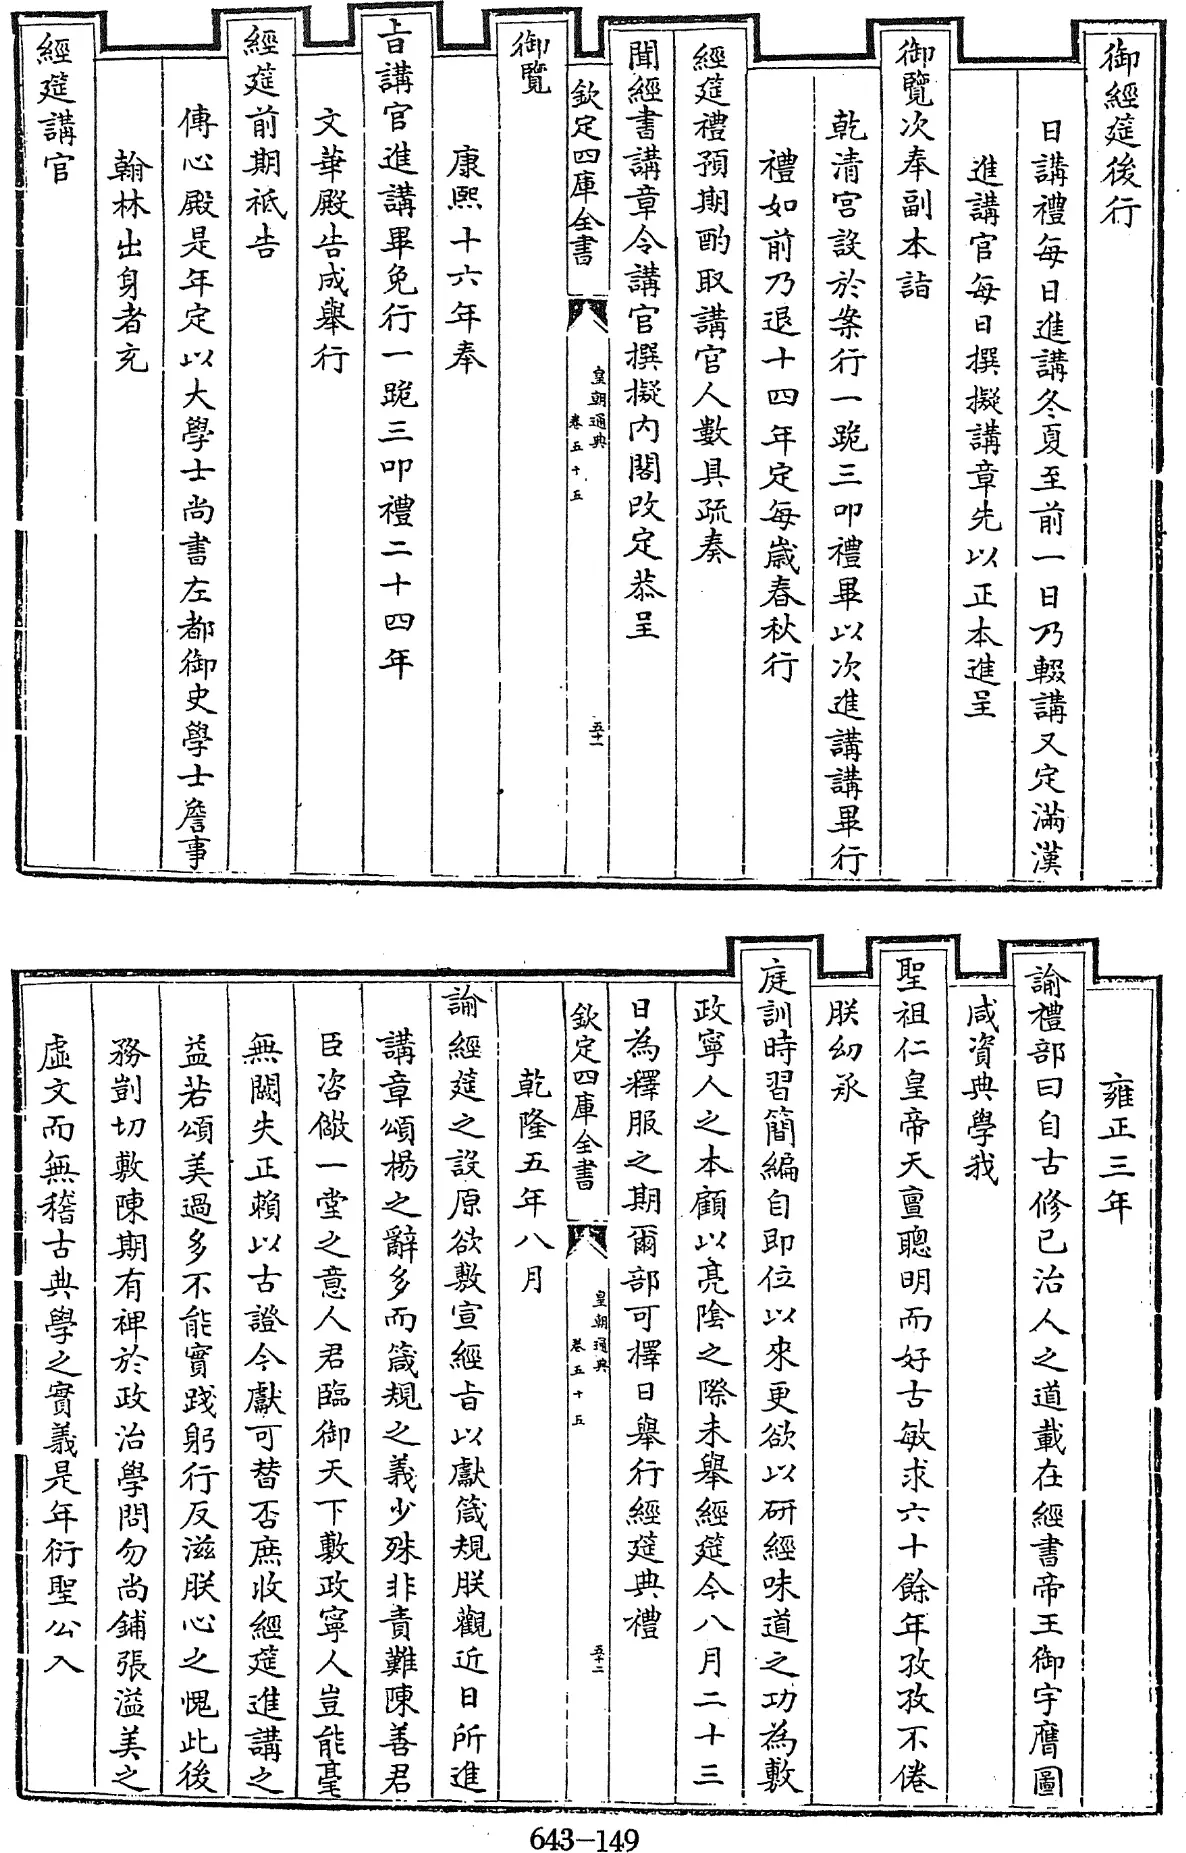 御經筵後行
日講禮每日進講冬夏至前一日乃輟講又定滿漢
進講官每日撰擬講章先以正本進呈
御覽次奉副本詣
乾清宮設於案行一跪三叩禮畢以次進講講畢行
禮如前乃退十四年定每歲春秋行
經筵禮預期酌取講官人數具疏奏
聞經書講章令講官撰擬內閣改定恭呈
欽定四庫全書
皇朝通典
卷五十五
五十一
御覽
康熙十六年奉
旨講官進講畢免行一跪三叩禮二十四年
文華殿告成舉行
經筵前期祗告
傳心殿是年定以大學士尚書左都御史學士詹事
翰林出身者充
經筵講官
雍正三年
諭禮部曰自古修己治人之道載在經書帝王御宇膺圖
咸資典學我
聖祖仁皇帝天亶聰明而好古敏求六十餘年孜孜不倦
朕幼承
庭訓時習簡編自即位以來更欲以研經味道之功為敷
政寧人之本顧以亮陰之際未舉經筵今八月二十三
日為釋服之期爾部可擇日舉行經筵典禮
欽定四庫全書
皇朝通典
卷五十五
五十二
乾隆五年八月
諭經筵之設原欲敷宣經旨以獻箴規朕觀近日所進
講章頌揚之辭多而箴規之義少殊非責難陳善君
臣咨儆一堂之意人君臨御天下敷政寧人豈能毫
無闕失正賴以古證今獻可替否庶收經筵進講之
益若頌美過多不能實踐躬行反滋朕心之愧此後
務剴切敷陳期有裨於政治學問勿尚鋪張溢美之
虛文而無稽古典學之實義是年衍聖公入
643-149